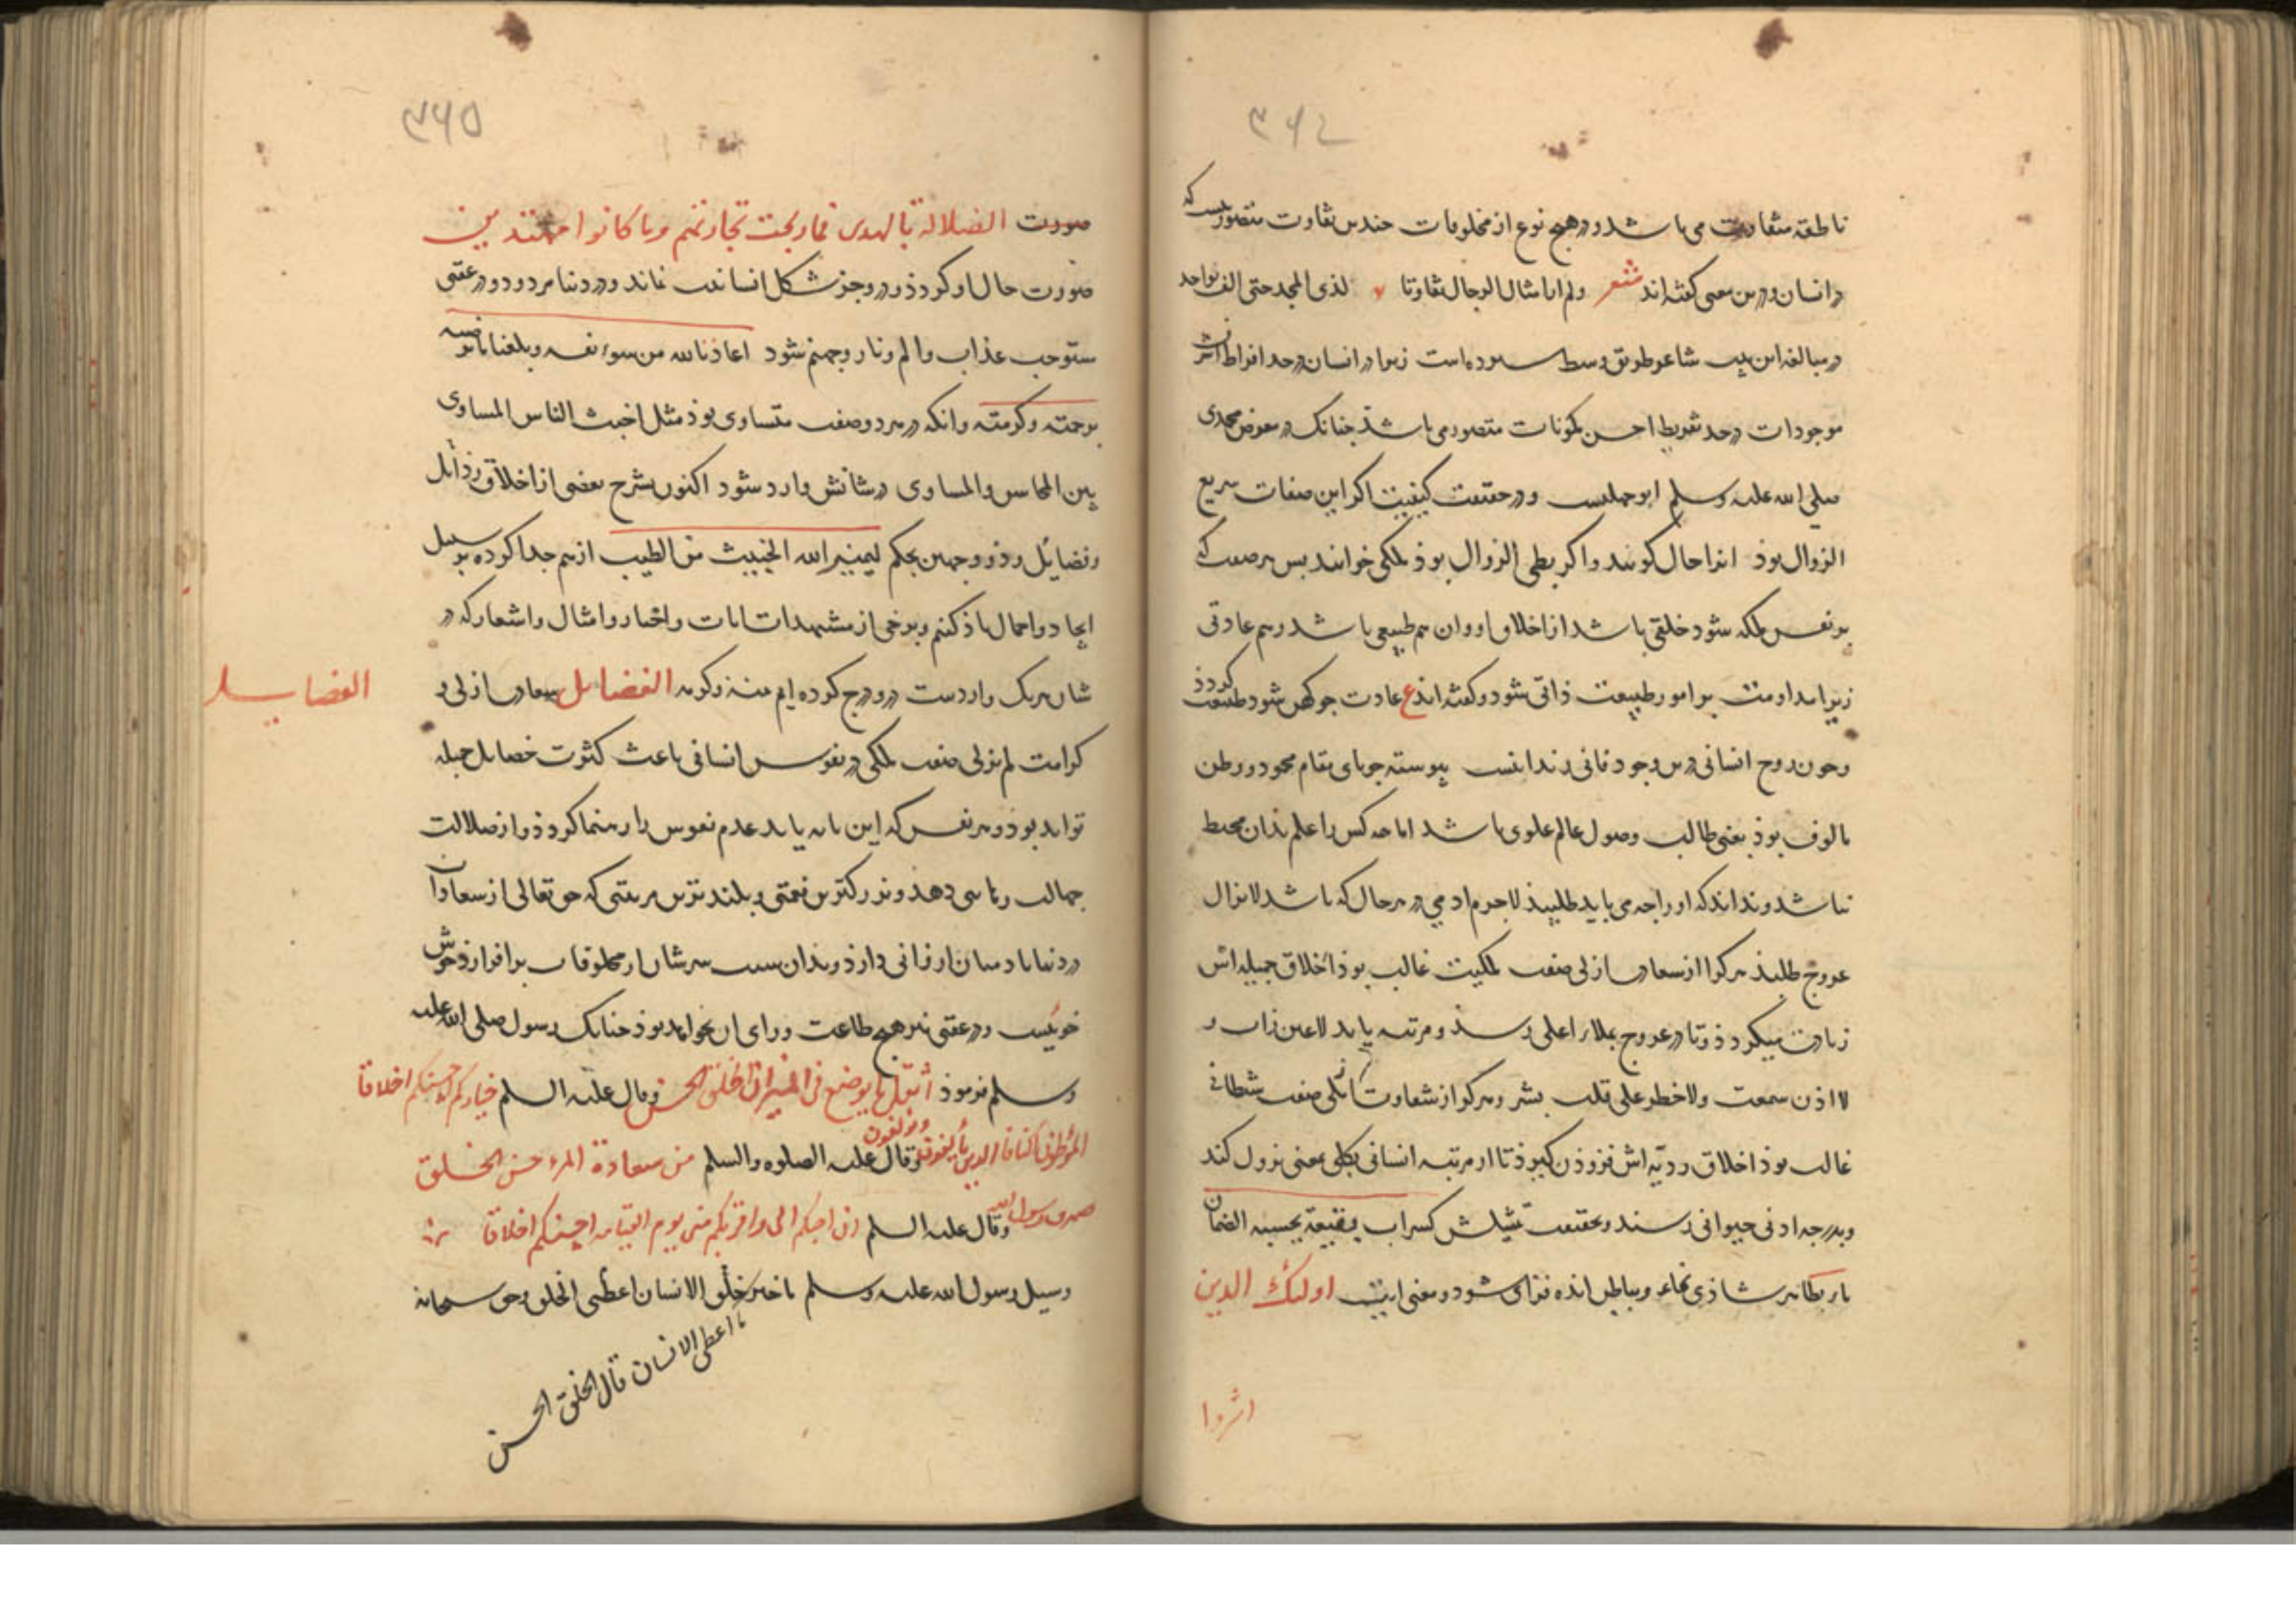 ۳۶۴
ناطقه متفاوت می باشد و در هیچ نوع از مخلوقات چندین تفاوت متصور نیست که
در انسان و درین معنی گفته‌اند شعر ولم ار امثال الرجال تفاوتا لذی المجد حتی الف بواحد
در مبالغه این بیت شاعر طریق وسط سپرده است زیرا در انسان در حد افراط اشرف
موجودات و در حد تفریط اخس مکونات متصور می باشذ چنانک در معرض محمدی
صلی الله علیه وسلم ابوجهلیست و در حقیقت کیفیت اکر این صفات سریع
الزوال بوذ انرا حال کویند و اکر بطی الزوال بوذ ملکی خوانند بس هر صفت که
بر نفس ملکه شود خلقی باشد از اخلاق او و ان هم طبیعی باشد و هم عادتی
زیرا مداومت بر امور طبیعت ذاتی شود و کفته‌اند ع عادت چو کهن شود طبیعت کردذ
وچون روح انسانی درین وجود فانی زندانیست پیوسته جویای مقام محمود و وطن
مالوف بوذ یعنی طالب وصول عالم علوی باشد اما چه کس را علم بذان محیط
نباشد و نداند که او را چه می باید طلبیذ لاجرم ادمی در هر حال که باشد لایزال
عروج طلبذ هر کرا از سعادت ازلی صفت ملکیت غالب بوذ اخلاق جمیله اش
زیادت میکردذ و تا در عروج بملاء اعلی رسذ و مرتبه یابد لا عین رات و
لا اذن سمعت ولا خطر علی قلب بشر و هر کرا از شقاوت ازلی صفت شیطانی
غالب بوذ اخلاق ردیّه اش فزوذن کیرذ تا از مرتبه انسانی بکلی معنی نزول کند
وبدرجه ادنی حیوانی رسند و بحقیقت تمثیلش کسراب بقیعة یحسبه الظمآن
ماء بظاهر شاذی نماء و بباطن انده فزای شود و معنی ایت اولئك الذین
اشتروا
۳۶۵
صورت الضلالة بالهدی فما ربحت تجارتهم وما کانوا مهتدین
صورت حال او کردذ و در وجز شکل انسانیت نماند و در دنیا مردود و در عقبی
مستوجب عذاب والم ونار وجهنم شود اعاذنا الله من سوء نفسه وبلغنا ما نرضیه
برحمته وکرمته وانکه در هر دو صفت متساوی بوذ مثل اخبث الناس المساوی
بین المحاسن والمساوی در شانش وارد شود اکنون بشرح بعضی از اخلاق رذائل
وفضائل وذو وجهین بحکم لیمیز الله الخبیث من الطیب از هم جدا کرده بر سبیل
ایجاد و اجمال یاذ کنیم وبرخی از مستشهدات ایات و اخبار و امثال و اشعار که در
شان هریک واردست درو درج کرده ایم بمنه وکرمه الفضایل سعادت ازلی و
الفضایل
کرامت لم یزلی صفت ملکی در نفوس انسانی باعث کثرت خصایل جمیله
تواند بوذ و هر نفس که این مایه یابد عدم نفوس را رهنما کردذ و از ضلالت
جهالت رهایی دهذ و بزرکترین نعمتی و بلندترین مرتبتی که حق تعالی از سعادات
در دنیا بادمیان ارزانی دارذ و بذان سبب سرشان از مخلوقات برافرازذ خوش
خوئیست و در عقبی نیز هیچ طاعت ورای ان نخواهد بوذ چنانک رسول صلی الله علیه
وسلم فرموذ اثقل ما یوضع فی المیزان الخلق الحسن وقال علیه السلم خیارکم احسنکم اخلاقا
الموطؤن اکنافا الذین یألفون ویؤلفون وقال علیه الصلوه والسلم من سعادة المرء حسن الخلق
صدق رسول الله وقال علیه السلم ان احبکم الی واقربکم منی یوم القیامه احسنکم اخلاقا
وسیل رسول الله علیه وسلم ما خیر خلق الانسان اعطی الخلق وحق سبحانه
ما اعطی الانسان قال الخلق الحسن